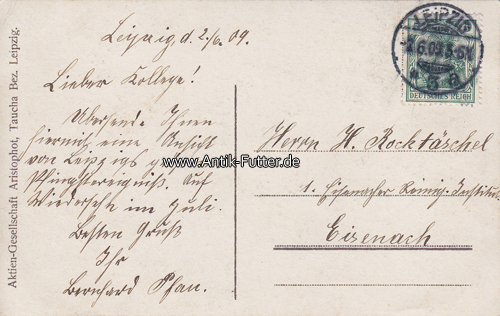 Leipzig, d. 2./6. 09.
Lieber Kollege!
Übersende Ihnen
hiermit eine Ansicht
von Leipzigs
Pfingstereigniß. Auf
Wiedersehn im Juli.
Besten Gruß
Ihr
Bernhard Pfau.
Herrn H. Rocktäschel
1. Eisenacher Reinig.-Institut
Eisenach
LEIPZIG
2.6.09.5-6N
* 5 a
DEUTSCHES REICH
www.Antik-Futter.de
Aktien-Gesellschaft Aristophot, Taucha Bez. Leipzig.